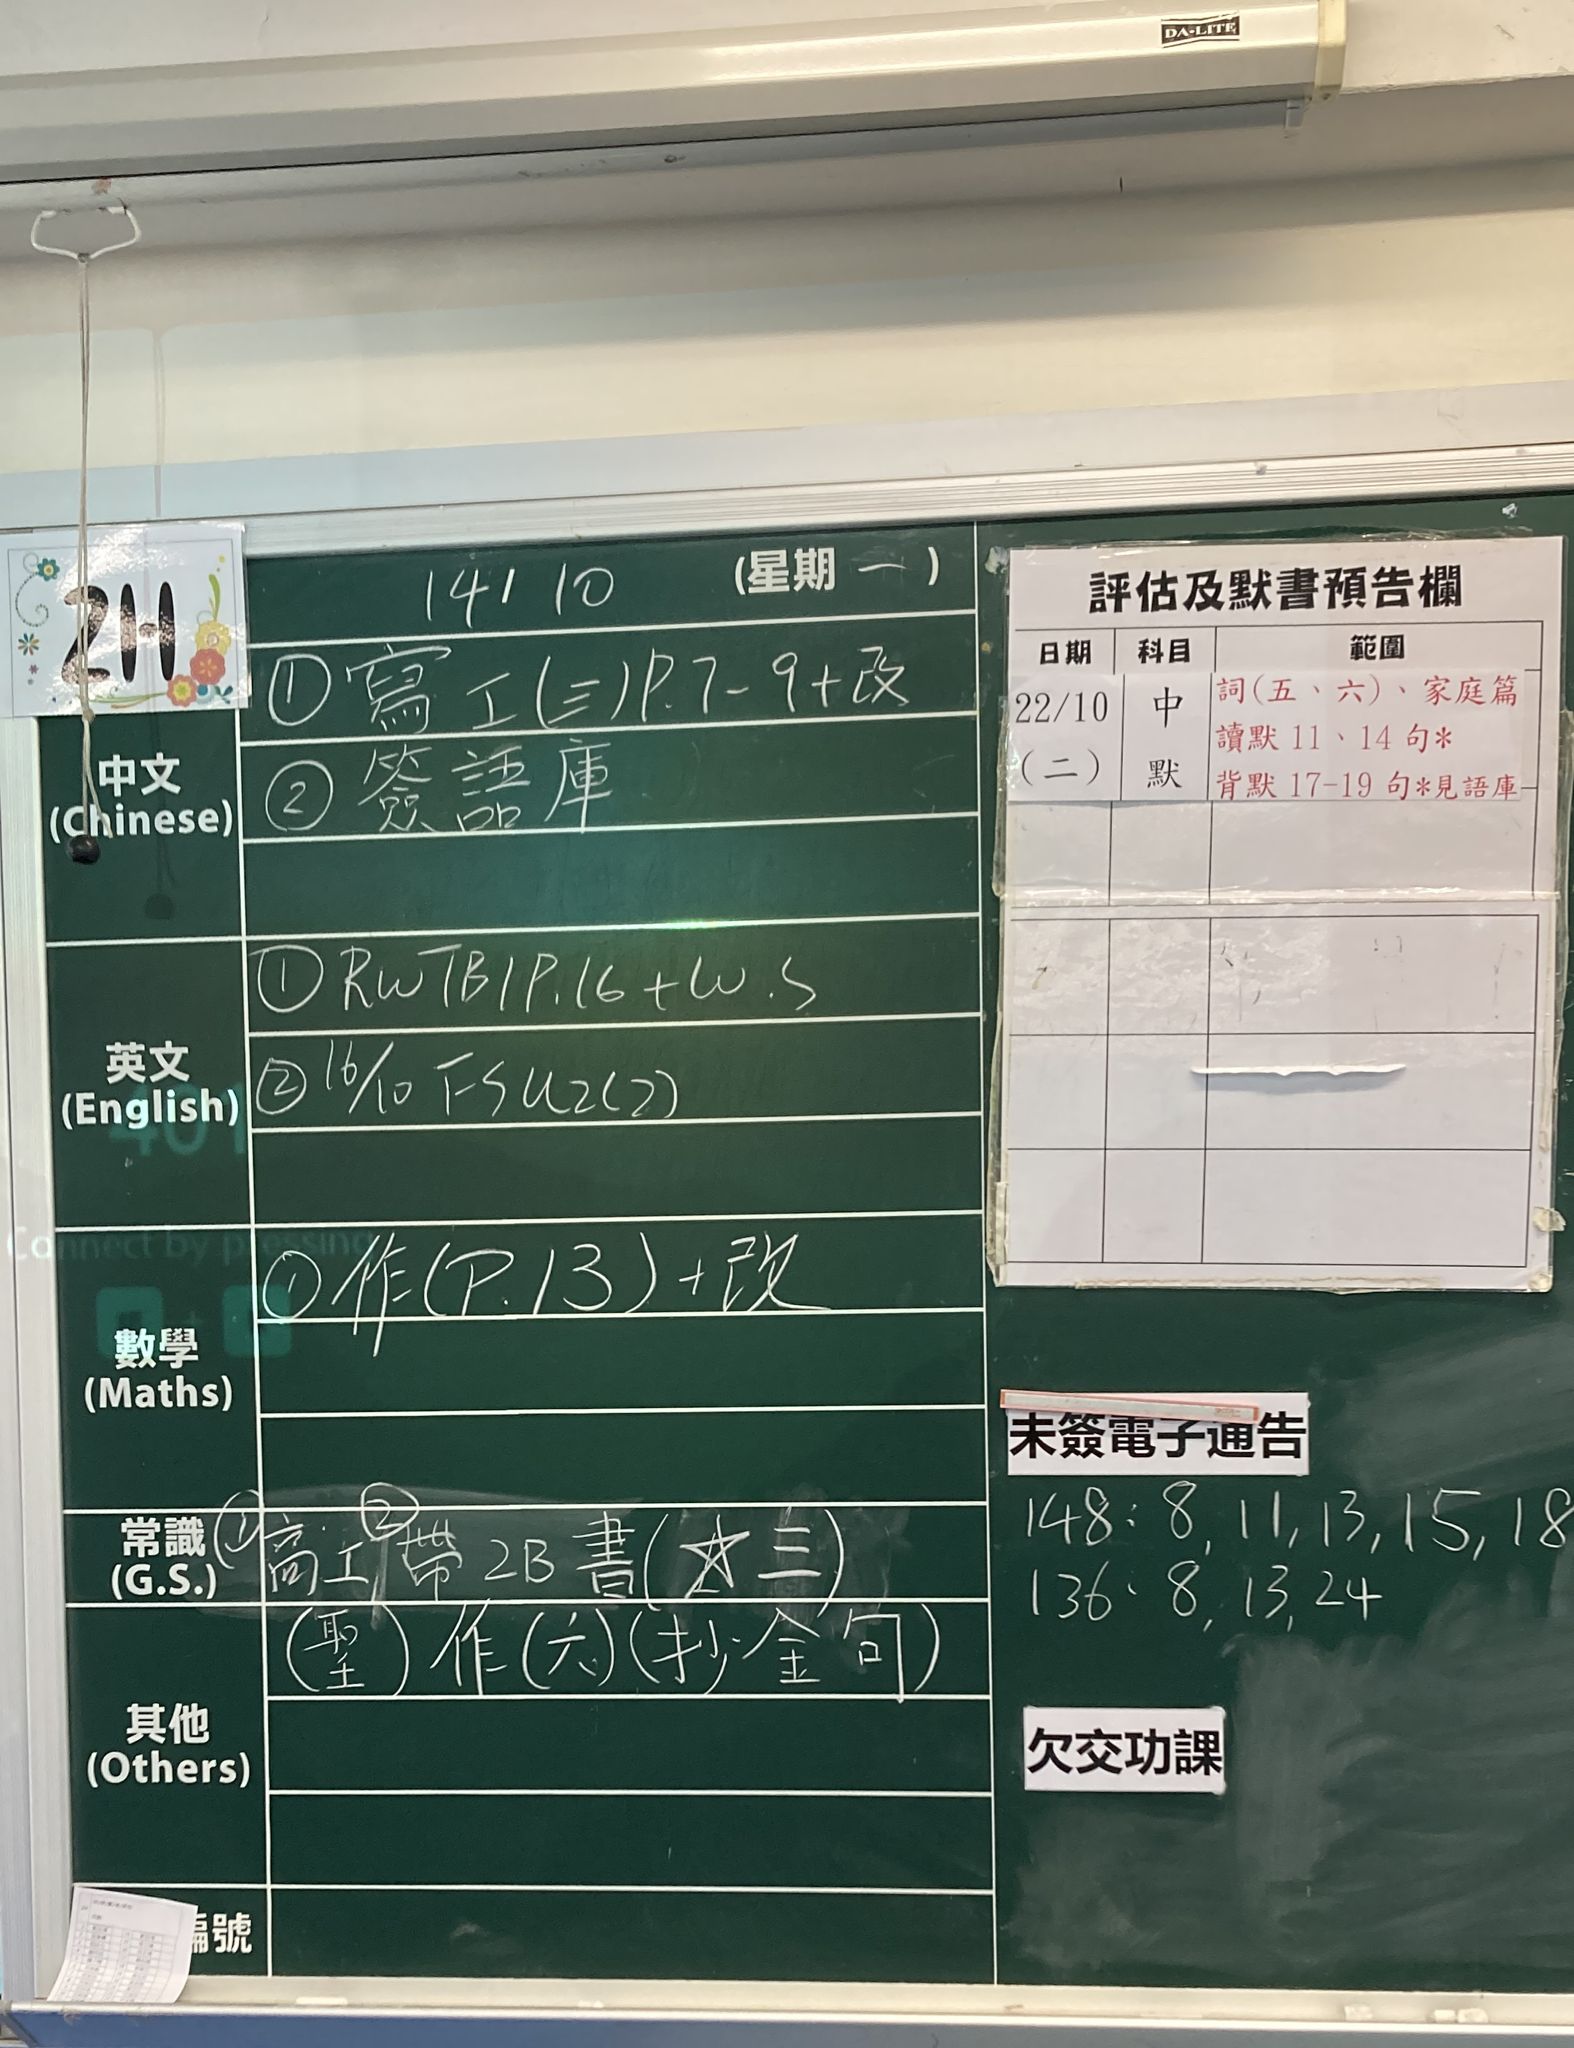 DA-LITE
2H
14/10 (星期一)
中文
(Chinese)
① 寫工(三)P.7-9+改
② 簽語庫
英文
(English)
① RWTB1P.16+W.S
② 16/10 FSU2(2)
數學
(Maths)
① 作(P.13)+改
常識
(G.S.)
① 高工 ② 帶2B書(☆三)
其他
(Others)
(聖)作(六)(抄金句)
編號
評估及默書預告欄
日期 科目 範圍
22/10 (二) 中默 詞(五、六)、家庭篇
讀默 11、14 句*
背默 17-19 句*見語庫
未簽電子通告
148: 8, 11, 13, 15, 18
136: 8, 13, 24
欠交功課
401
Connect by pressing